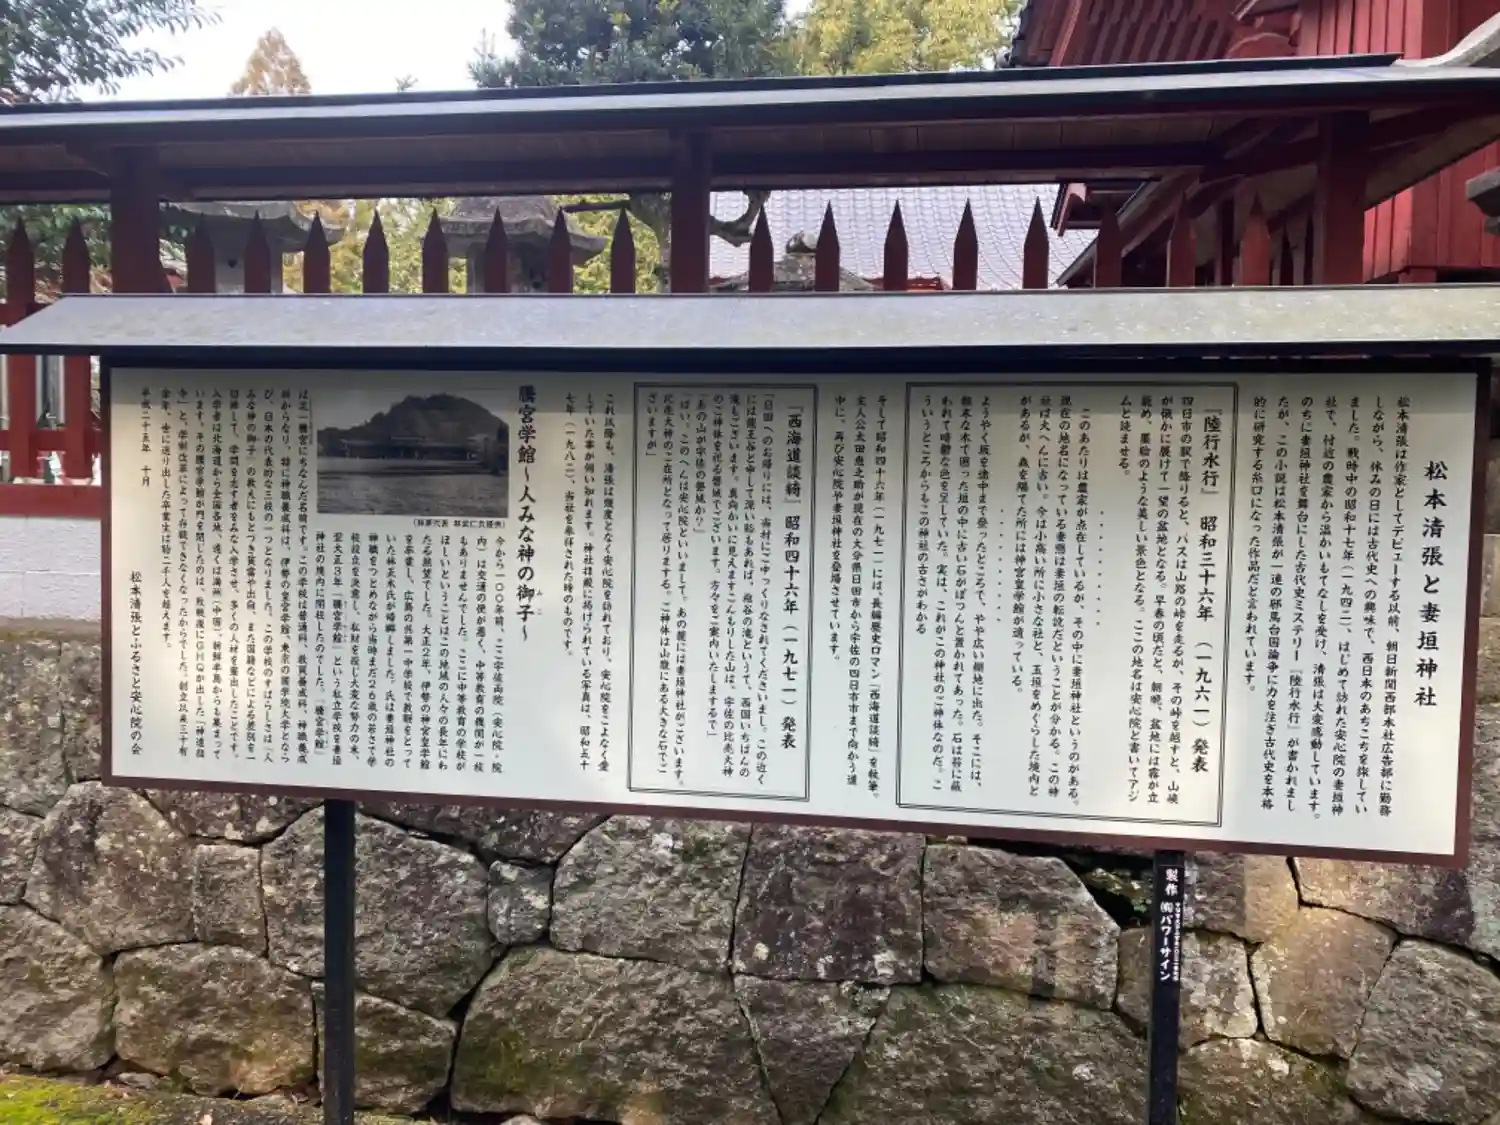 松本清張と妻垣神社
松本清張は作家としてデビューする以前、朝日新聞西部本社広告部に勤務
しながら、休みの日には古代史への興味で、西日本のあちこちを旅してい
ました。戦時中の昭和十七年(一九四二)、はじめて訪れた安心院の妻垣神
社で、付近の農家から温かいもてなしを受け、清張は大変感動しています。
のちに妻垣神社を舞台にした古代史ミステリー『陸行水行』が書かれまし
たが、この小説は松本清張が一連の邪馬台国論争に力を注ぎ古代史を本格
的に研究する糸口になった作品だと言われています。
『陸行水行』 昭和三十六年(一九六一)発表
四日市の駅で降りると、バスは山路の峠を走るが、その峠を越すと、山峡
が俄かに展けて一望の盆地となる。早春の頃だと、朝晩、盆地には霧が立
ち眺め、墨絵のような美しい景色となる。ここの地名は安心院と書いてアジ
ムと読ませる。
・・・・・・・・・・
このあたりは農家が点在しているが、その中に妻垣神社というのがある。
現在の地名になっている妻垣は妻垣の転訛だということが分かる。この神
社は大へんに古い。今は小高い所に小さな社と、玉垣をめぐらした境内と
があるが、森を隔てた所には神宮皇学館が残っている。
・・・・・・・・・・
ようやく坂を途中まで登ったところで、やや広い棚地に出た。そこには、
粗末な木で囲った垣の中に古い石がぽつんと置かれてあった。石は苔に蔽
われて暗鬱な色を呈していた。実は、これがこの神社のご神体なのだ。こ
ういうところからもこの神社の古さがわかる
そして昭和四十六年(一九七一)には、長編歴史ロマン『西海道談綺』を執筆。
主人公太田恵之助が現在の大分県日田市から宇佐の四日市市まで向かう道
中に、再び安心院や妻垣神社を登場させています。
『西海道談綺』昭和四十六年(一九七一)発表
「日田へのお帰りには、当村にごゆっくりなされてくださいまし。この近く
には龍王谷と申して深い谿もあれば、福谷の滝といって、西国いちばんの
滝もございます。真向かいに見えますこんもりした山は、宇佐の比売大神
のご神体を祀る磐城でございます。方々をご案内いたしまするで」
「あの山が宇佐の磐城か?」
「はい。このへんは安心院といいまして。あの麓には妻垣神社がございます。
比売大神のご在所となって居りまする。ご神体は山腹にある大きな石でご
ざいますが」
これ以降も、清張は幾度となく安心院を訪れており、安心院をこよなく愛
していた事が伺い知れます。神社は殿に掲げられている写真は、昭和五十
七年(一九八二)、当社を参拝された時のものです。
騰宮学館～人みな神の御子～
(林家代表 林武仁氏提供)
今から一〇〇年前、ここ宇佐両院(安心院・院
内)は交通の便が悪く、中等教育の機関が一校
もありませんでした。ここに中等教育の学校が
ほしいということはこの地域の人々の長年にわ
たる願望でした。大正2年、伊勢の神宮皇学館
を卒業し、広島の呉第一中学校で教鞭をとって
いた林正木氏が帰郷しました。氏は妻垣神社の
神職をつとめながら当時まだ26歳の若さで学
校設立を決意し、私財を投じ大変な努力の末、
翌大正3年「騰宮学館」という私立学校を妻垣
神社の境内に開校したのでした。「騰宮学館」
は足一騰宮にちなんだ名前です。この学校は普通科、教員養成科、神職養成
科からなり、特に神職養成科は、伊勢の皇宮学館、東京の国学院大学となら
び、日本の代表的な三校の一つとなりました。この学校のすばらしさは「人
みな神の御子」の教えにもとづき貧富や出自、また国籍などによる差別を一
切排して、学問を志す者をみな入学させ、多くの人材を輩出したことです。
入学者は北海道から全国各地、遠くは満州(中国)、朝鮮半島からも集まって
います。その騰宮学館が門を閉じたのは、敗戦後にGHQが出した「神道指
令」と、学制改革によって存続できなくなったからでした。創立以来三十有
余年、世に送り出した卒業生は約二千人を超えます。
平成二十五年 十月
松本清張とふるさと安心院の会
製作 ㈲パワーサイン